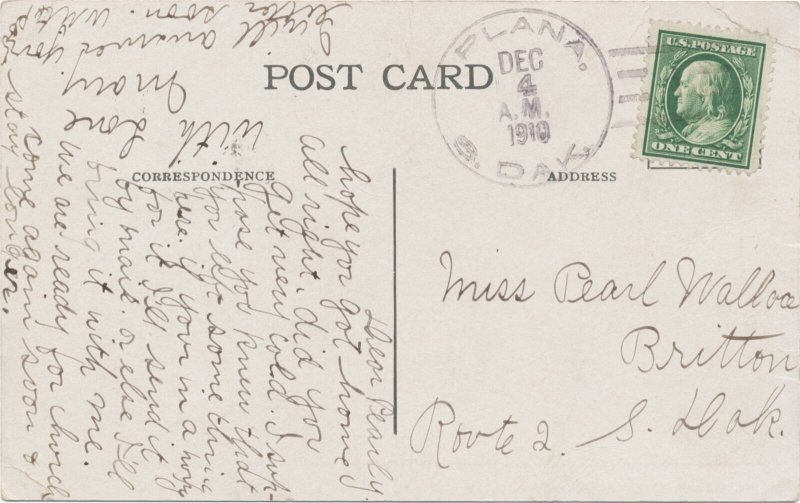 POST CARD
CORRESPONDENCE
ADDRESS
PLANA,
DEC
4
A.M.
1910
S. DAK.
U.S. POSTAGE
ONE CENT
Miss Pearl Wallace
Britton
Route 2. S. Dak.
Dear Pearly.
hope you got home
all right. did you
get very cold. I sup-
pose you knew that
you left some thing
here. if your in a hurry
for it I'll send it
by mail. or else I'll
bring it with me.
we are ready for church
come again soon &
stay longer.
with love
Mary
I will answer your
letter soon.